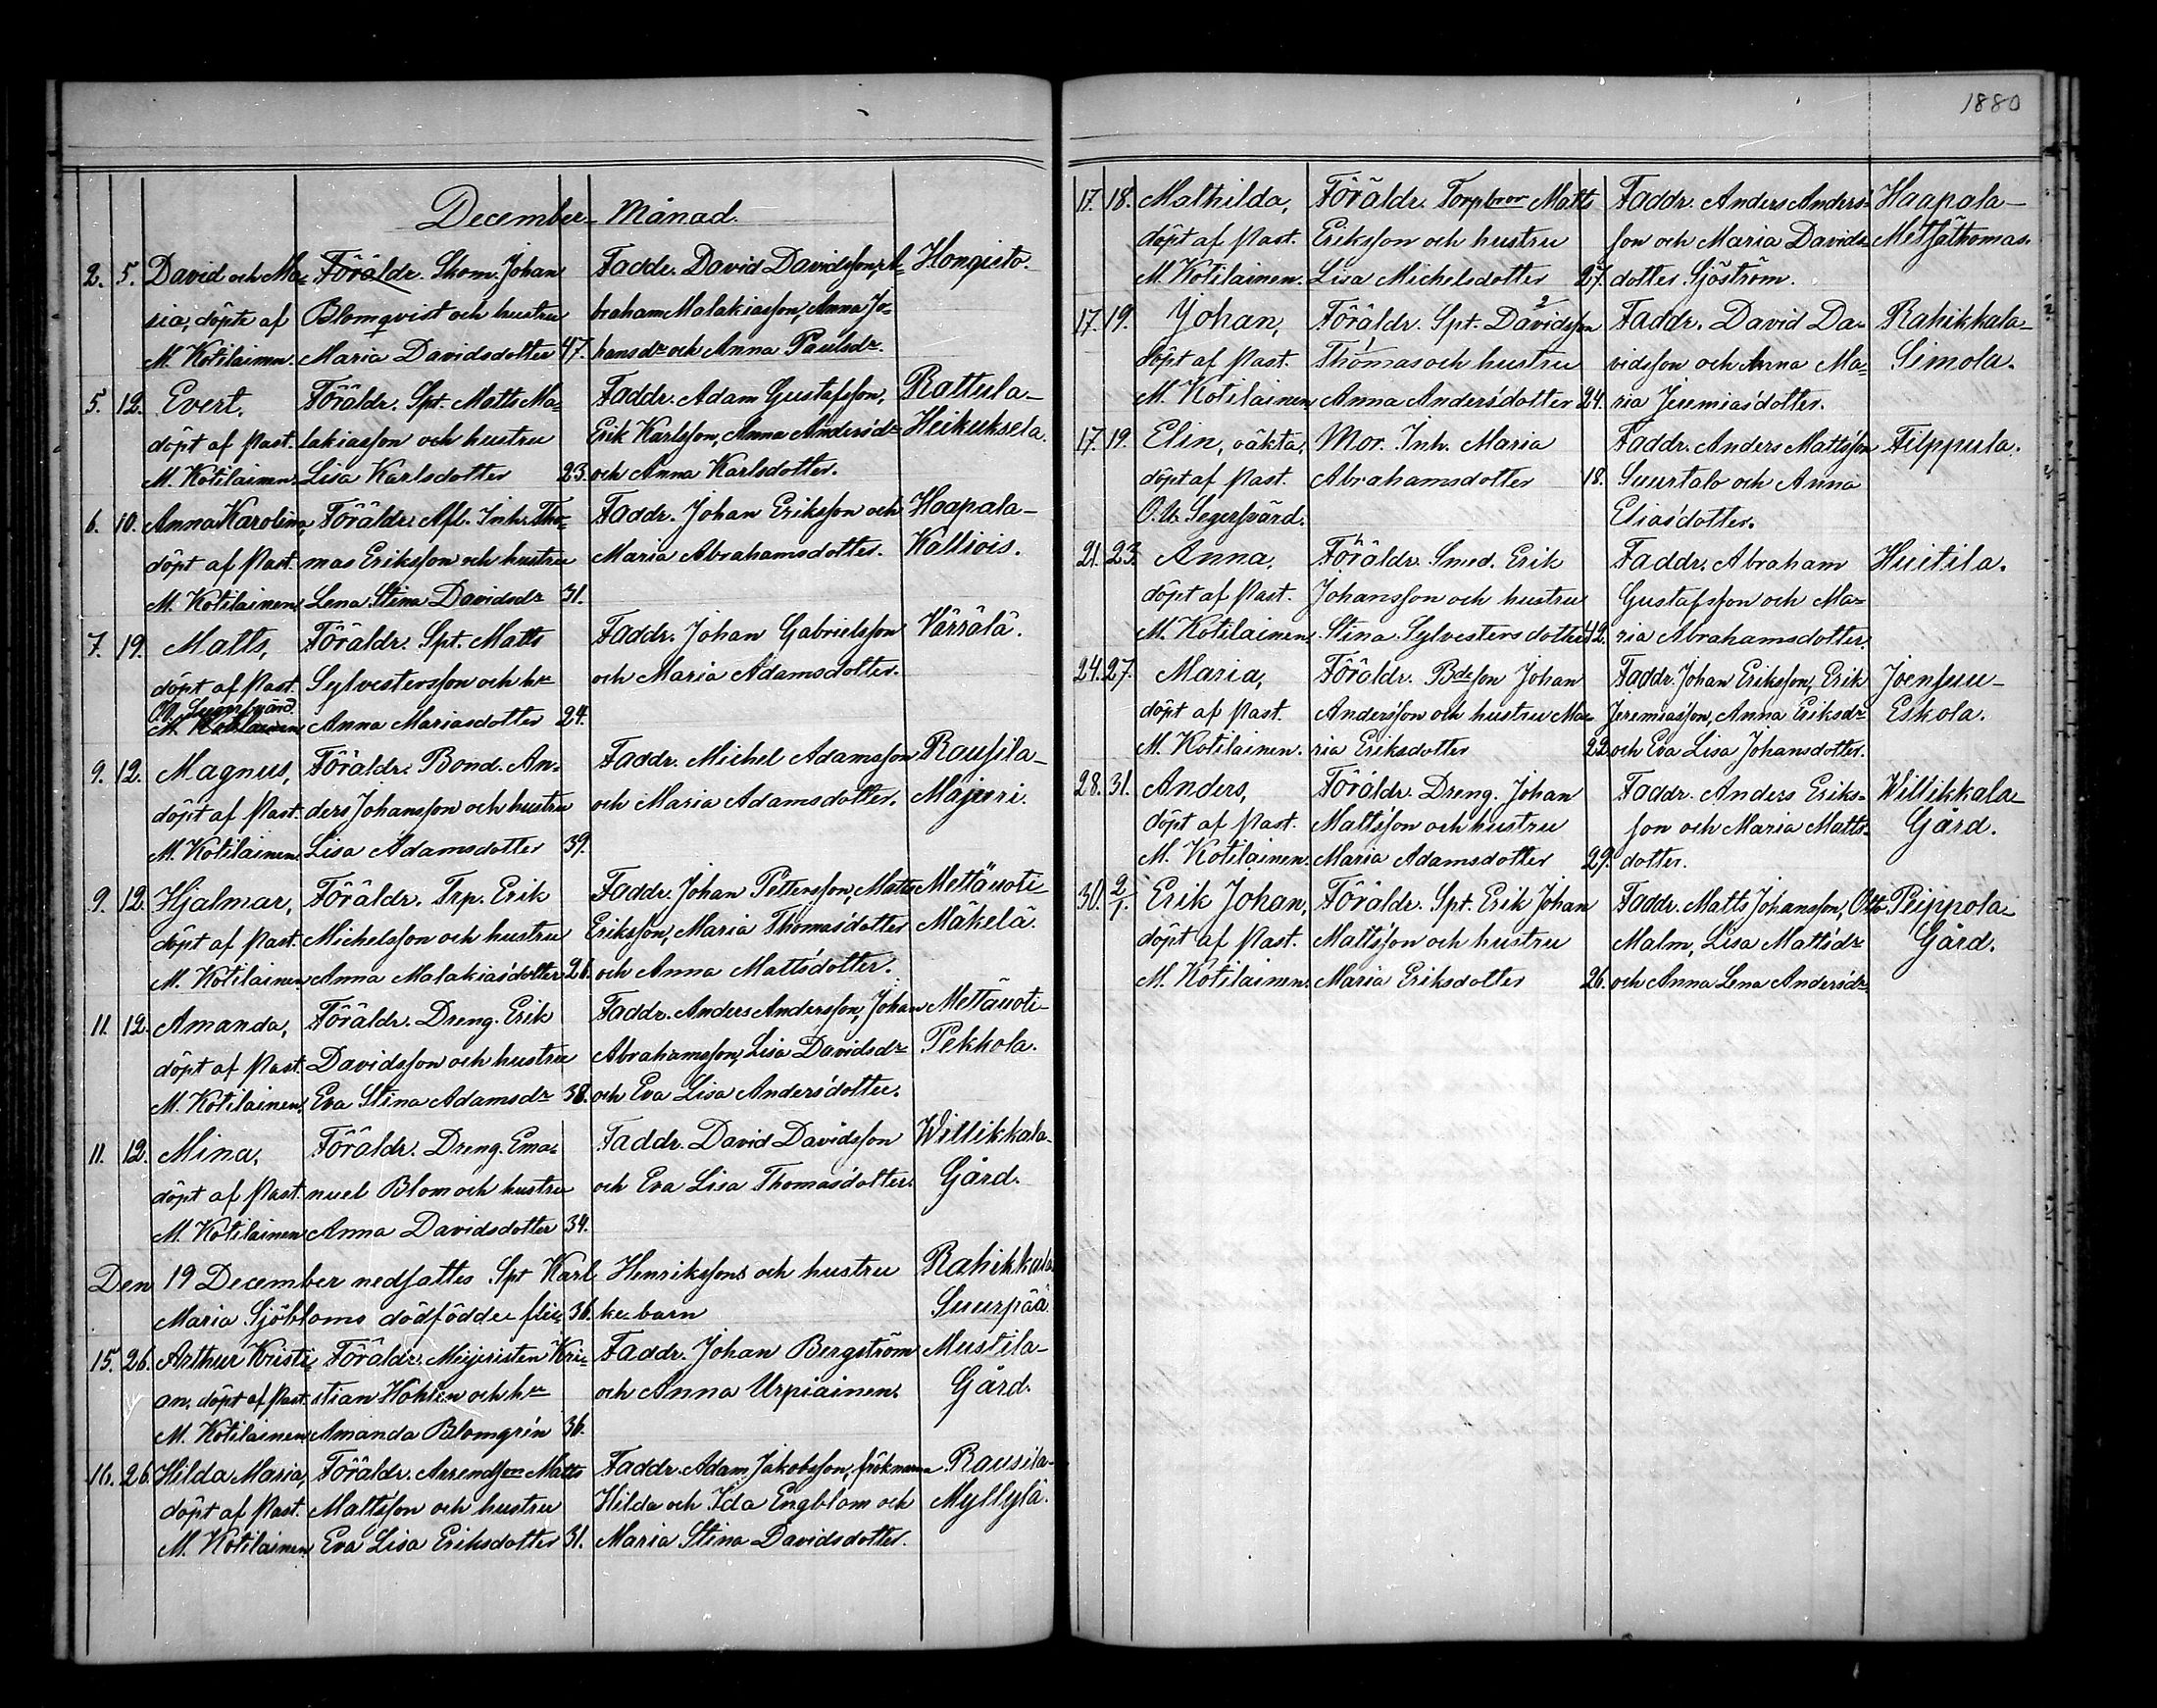 1880
December Månad.
2. 5. David och Ma= Föräldr. Skom. Johan Faddr. David Davidsson, A= Hongisto.
ria, döpte af Blomqvist och hustru braham Malakiasson, Anna Jo=
M. Kotilainen. Maria Davidsdotter 47. hansdr och Anna Paulsdr.
5. 12. Evert, Föräldr. Spt. Matts Ma= Faddr. Adam Gustafsson, Rattula-
döpt af Past. lakiasson och hustru Erik Karlsson, Anna Andersdr Heikuksela.
M. Kotilainen. Lisa Karlsdotter 23. och Anna Karlsdotter.
6. 10. Anna Karolina, Föräldr. Afl. Inh. Tho= Faddr. Johan Eriksson och Haapala-
döpt af Past. mas Eriksson och hustru Maria Abrahamsdotter. Kalliois.
M. Kotilainen. Lena Stina Davidsdr 31.
7. 19. Matts, Föräldr. Spt. Matts Faddr. Johan Gabrielsson Värrälä.
döpt af Past. Sylvestersson och hu och Maria Adamsdotter.
M. Kotilainen Anna Mariasdotter 24.
9. 12. Magnus, Föräldr. Bond. An= Faddr. Michel Adamsson Rausila-
döpt af Past. ders Johansson och hustru och Maria Adamsdotter. Majuri.
M. Kotilainen. Lisa Adamsdotter 39.
9. 12. Hjalmar, Föräldr. Trp. Erik Faddr. Johan Pettersson, Matts Mettäuoti-
döpt af Past. Michelsson och hustru Eriksson, Maria Thomasdotter Mäkelä.
M. Kotilainen Anna Malakiasdotter 26. och Anna Mattsdotter.
11. 12. Amanda, Föräldr. Dreng. Erik Faddr. Anders Andersson, Johan Mettäuoti-
döpt af Past. Davidsson och hustru Abrahamsson, Lisa Davidsdr Pekkola.
M. Kotilainen. Eva Stina Adamsdr 38. och Eva Lisa Andersdotter.
11. 12. Mina, Föräldr. Dreng. Ema= Faddr. David Davidsson Willikkala-
döpt af Past. nuel Blom och hustru och Eva Lisa Thomasdotter. Gård.
M. Kotilainen Anna Davidsdotter 34.
Den 19 December nedsattes Spt Karl Henrikssons och hustru Rahikkala-
Maria Sjöbloms dödfödde flic= 36. ke barn Suurpää.
15. 26. Arthur Kristi= Föräldr. Mejeristen Kri= Faddr. Johan Bergström Mustila-
an, döpt af Past. stian Hohlen och hu och Anna Urpiainen. Gård.
M. Kotilainen Amanda Blomgrén 36.
16. 26. Hilda Maria, Föräldr. Arrendson Matts Faddr. Adam Jakobsson, fröknarna Rausila-
döpt af Past. Mattsson och hustru Hilda och Ida Engblom och Myllylä.
M. Kotilainen. Eva Lisa Eriksdotter 31. Maria Stina Davidsdotter.
17. 18. Mathilda, Föräldr. Torpbror Matts Faddr. Anders Anders= Haapala-
döpt af Past. Eriksson och hustru son och Maria Davids= Metsäthomas.
M. Kotilainen. Lisa Michelsdotter 27. dotter Sjöström.
17. 19. Johan, Föräldr. Spt. Davidsson 2 Faddr. David Da= Rahikkala-
döpt af Past. Thomas 1 och hustru vidsson och Anna Ma= Simola.
M. Kotilainen Anna Andersdotter 24. ria Jeremiasdotter.
17. 19. Elin, oäkta, Mor. Inh. Maria Faddr. Anders Mattsson Filppula.
döpt af Past. Abrahamsdotter 18. Suurtalo och Anna
O. W. Segersvärd. Eliasdotter.
21. 23. Anna, Föräldr. Smed. Erik Faddr. Abraham Huitila.
döpt af Past. Johansson och hustru Gustafsson och Ma=
M. Kotilainen. Stina Sylvestersdotter 42. ria Abrahamsdotter.
24. 27. Maria, Föräldr. Bdeson Johan Faddr. Johan Eriksson, Erik Joensuu-
döpt af Past. Andersson och hustru Ma= Jeremiasson, Anna Eriksdr Eskola.
M. Kotilainen. ria Eriksdotter 22. och Eva Lisa Johansdotter.
28. 31. Anders, Föräldr. Dreng. Johan Faddr. Anders Eriks= Willikkala-
döpt af Past. Mattsson och hustru son och Maria Matts= Gård.
M. Kotilainen. Maria Adamsdotter 29. dotter.
30. 2/1. Erik Johan, Föräldr. Spt. Erik Johan Faddr. Matts Johansson, Otto Peippola-
döpt af Past. Mattsson och hustru Malm, Lisa Mattsdr Gård.
M. Kotilainen. Maria Eriksdotter 26. och Anna Lena Andersdr.